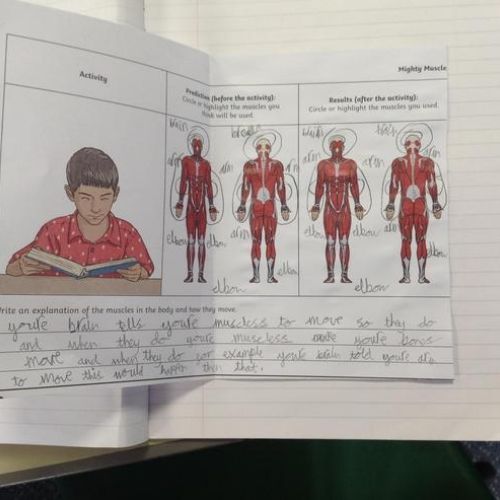 Mighty Muscle
Activity
Prediction (before the activity):
Circle or highlight the muscles you
think will be used.
Results (after the activity):
Circle or highlight the muscles you used.
brain
brain
brain
brain
arm
arm
arm
arm
arm
arm
elbow
elbow
elbow
elbow
elbow
elbow
elbow
elbow
Write an explanation of the muscles in the body and how they move.
you're brain tells you're muscless to move so they do
and when they do you're muscless you're bones
move and when they do for example you're brain told you're arm
to move this would happen then that.